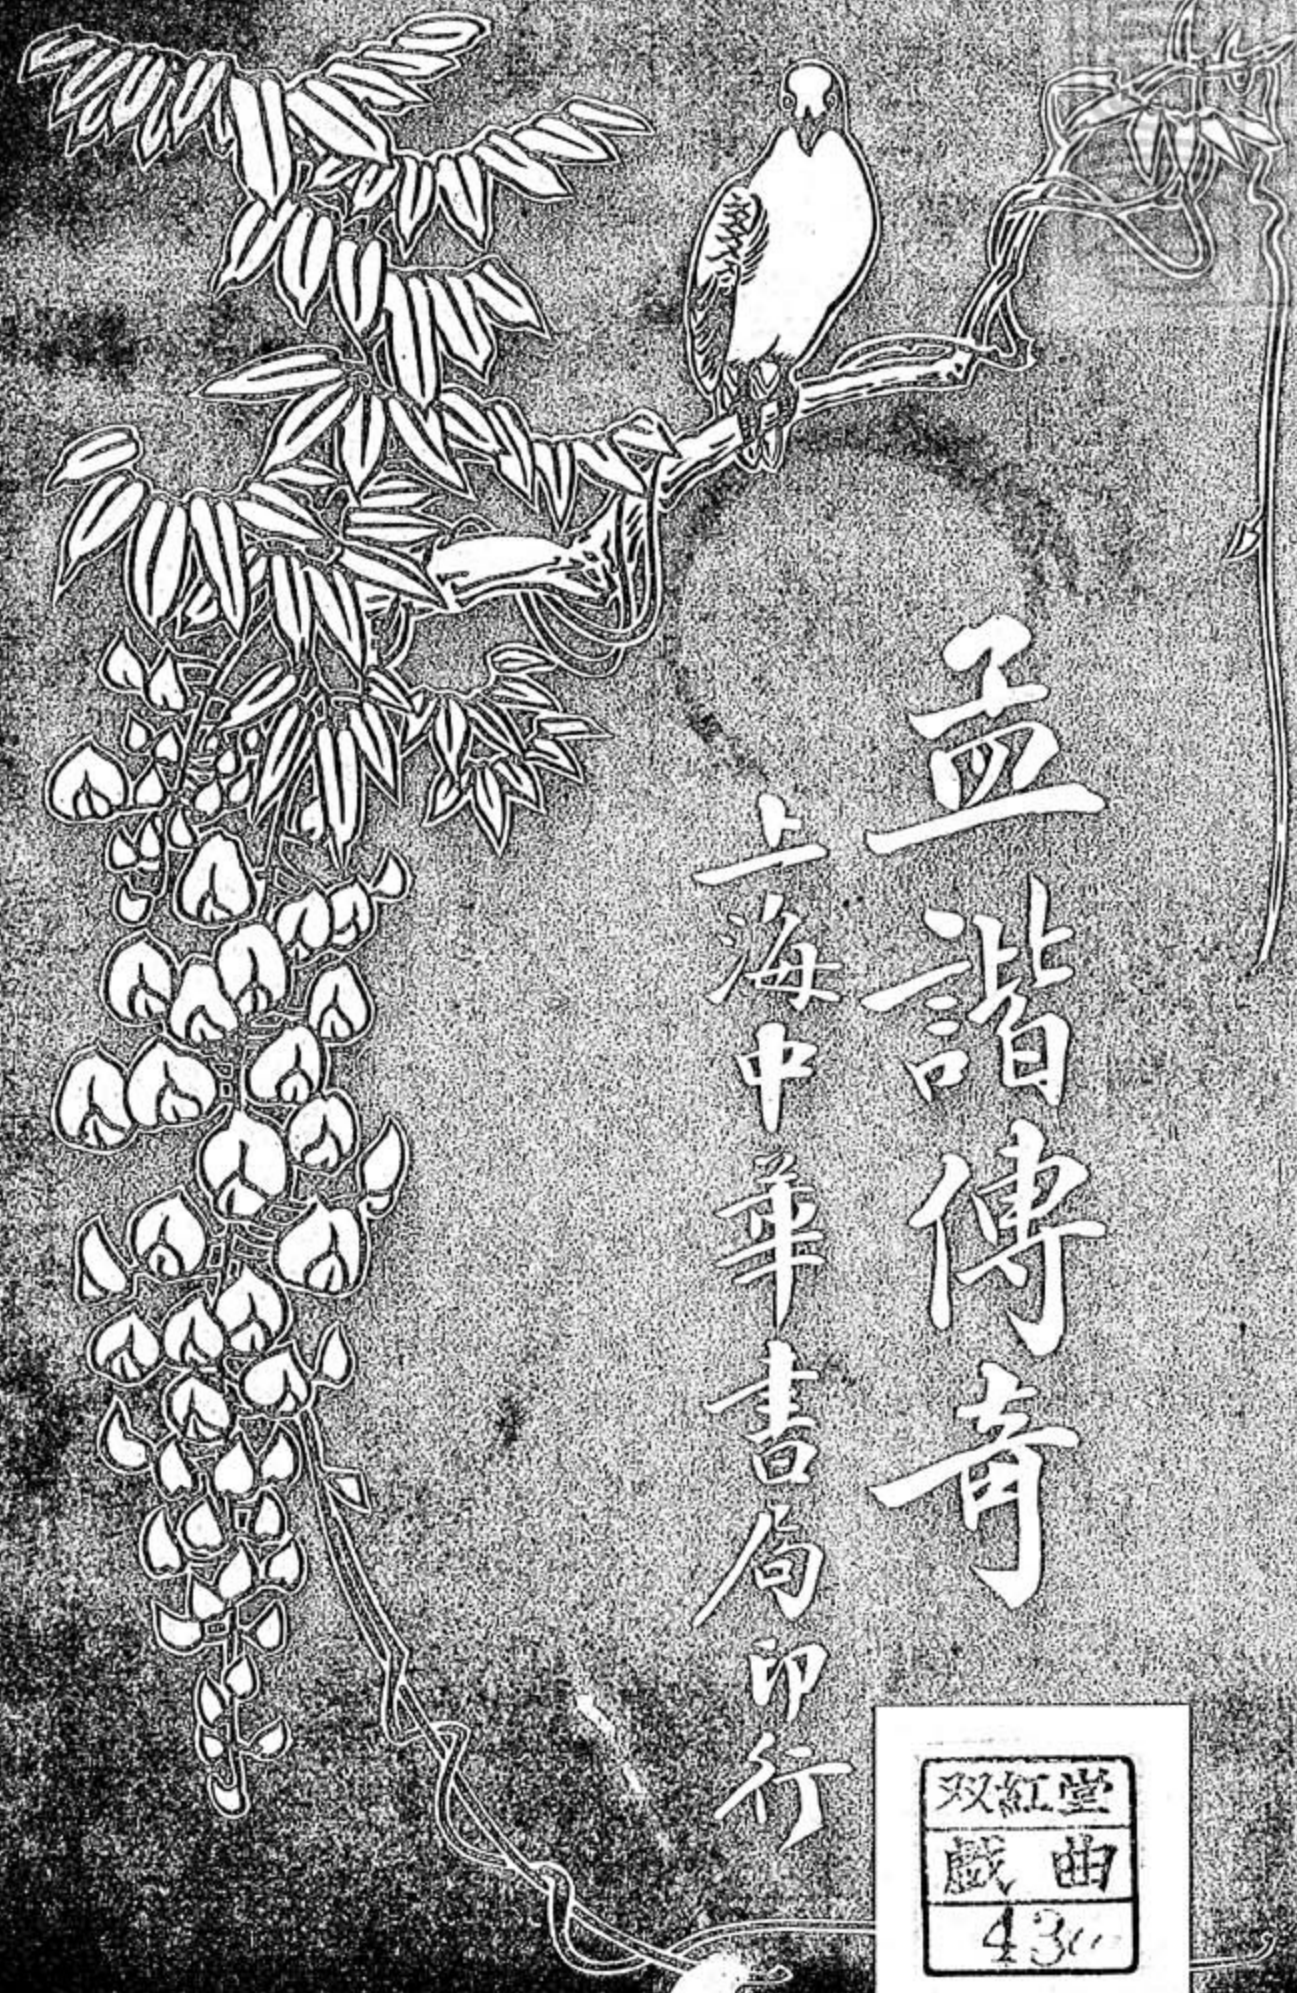 孟諧傳奇
上海中華書局印行
双紅堂
戯曲
430